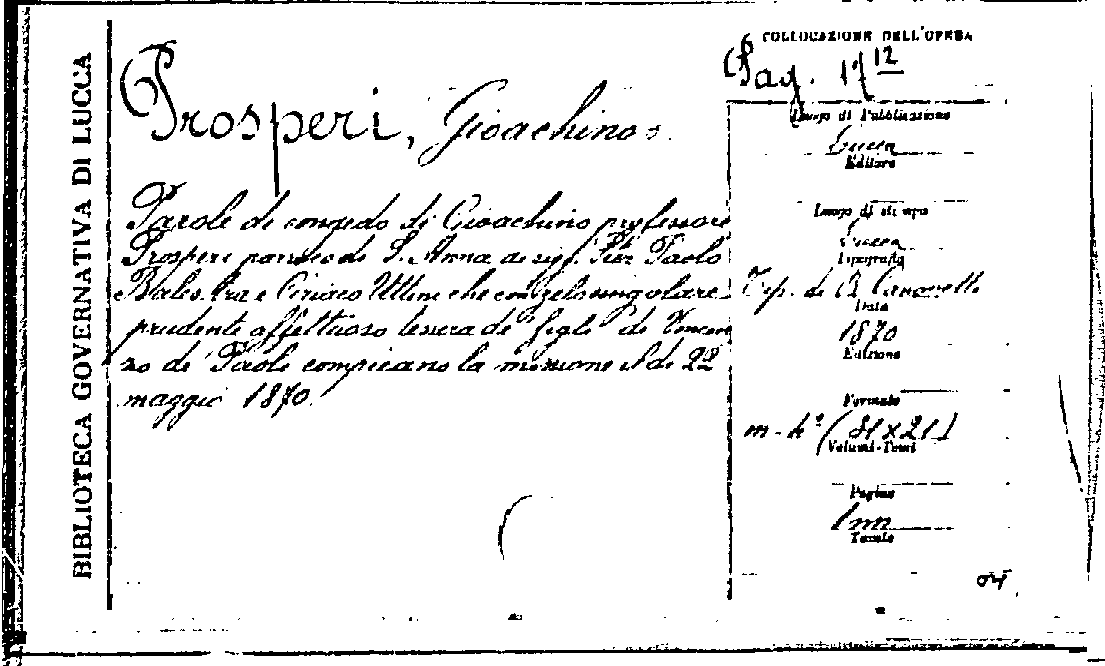 BIBLIOTECA GOVERNATIVA DI LUCCA
Prosperi, Gioachino
Parole di congedo di Gioachino professore
Prosperi parroco di S. Anna ai sigg. Paolo
e Ciriaco Uttini che con zelo singolare
prudente affettuoso tessera de' figli di Vincen
zo de' Paoli compicano la missione il dì 22
maggio 1870.
COLLOCAZIONE DELL'OPERA
Pag. 17 12
Luogo di Pubblicazione
Lucca
Editore
Luogo di stampa
Lucca
Tipografia
Tip. di B. Canovetti
Data
1870
Edizione
Formato
m-4° (31x21)
Volumi-Tomi
Pagine
1 nn
Tavole